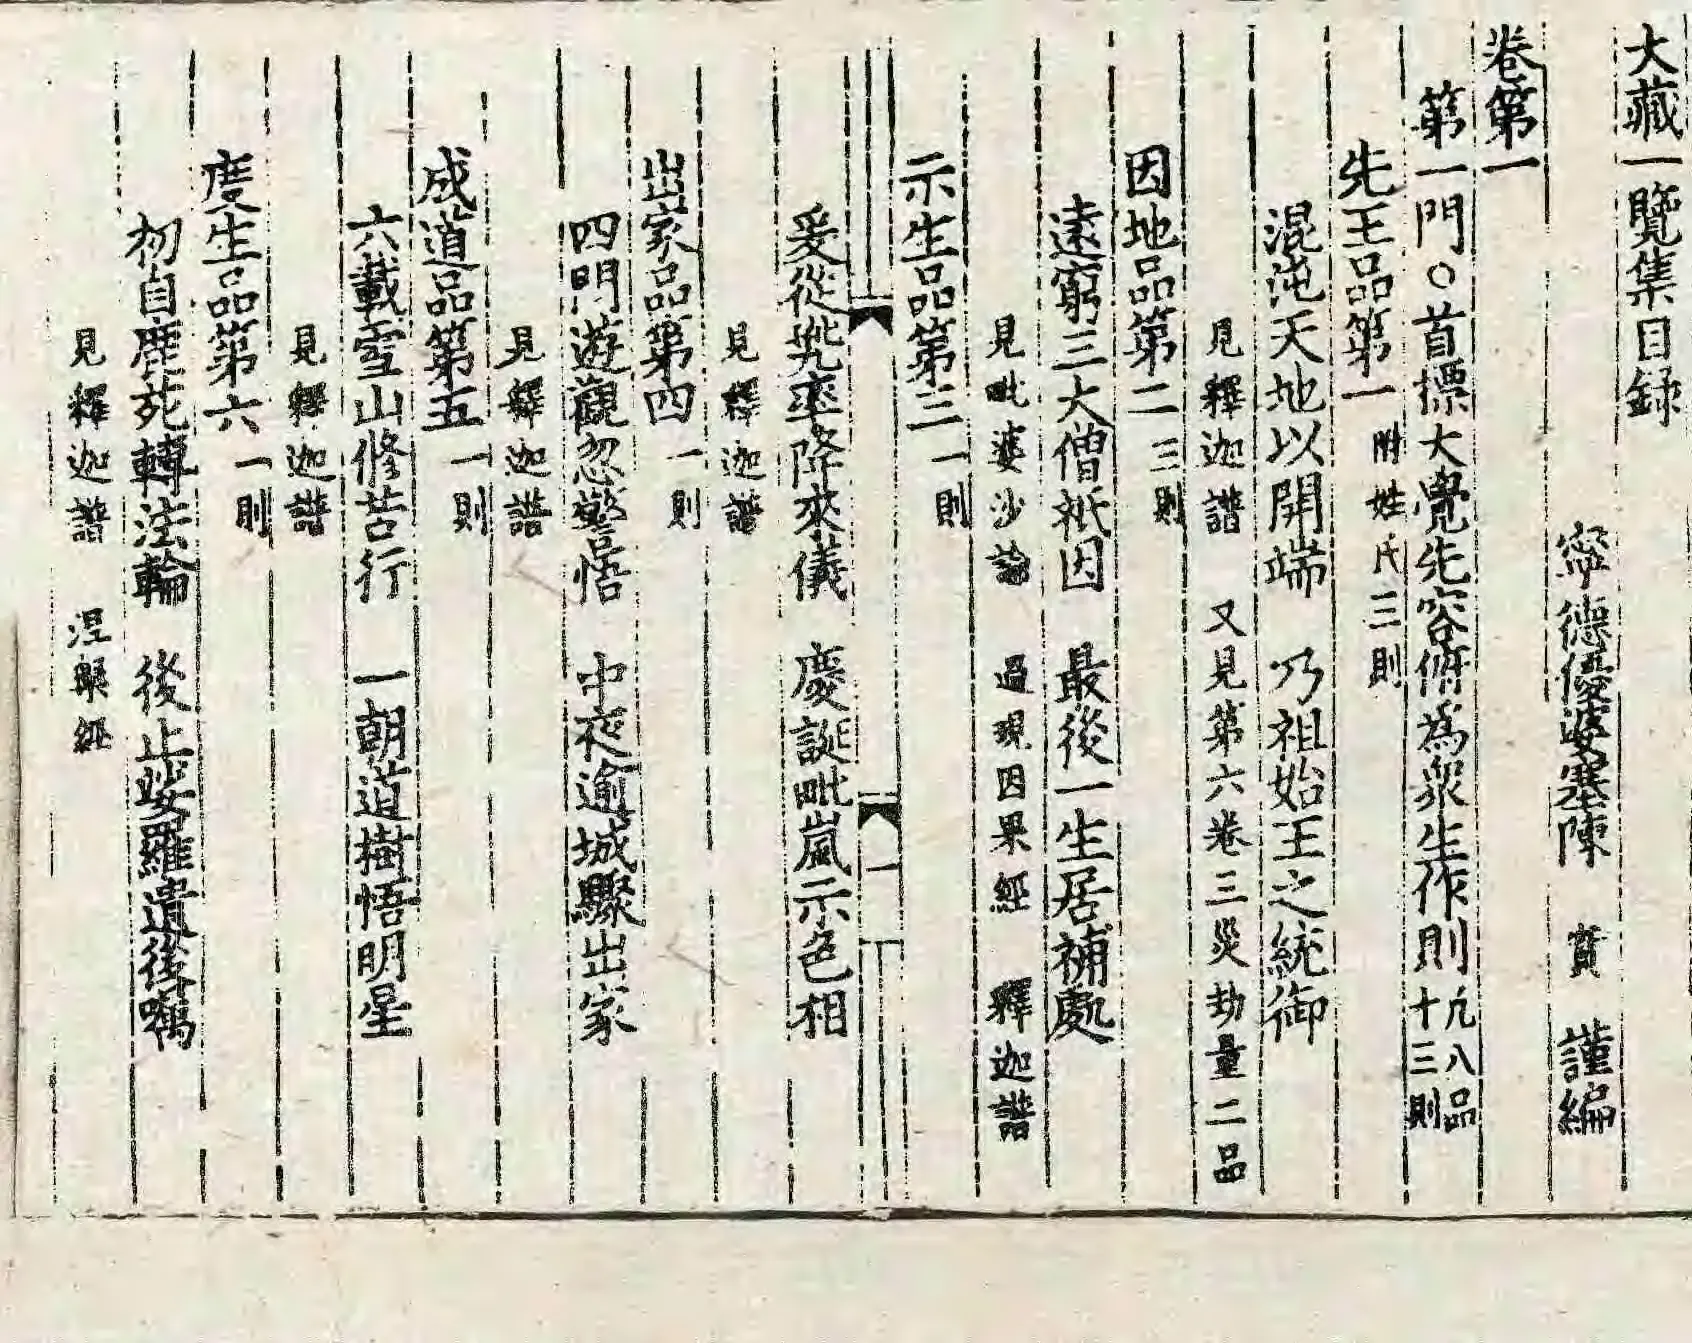 大藏一覽集目録
寧德優婆塞陳　實　謹編
卷第一
第一門○首標大覺先容俯為衆生作則凢八品十三則
先王品第一附姓氏三則
混沌天地以開端　乃祖始王之統御
見釋迦譜　又見第六卷三災劫量二品
因地品第二三則
遠窮三大僧祇因　最後一生居補處
見毗婆沙論　過現因果經　釋迦譜
示生品第三一則
一
爰從兠率降來儀　慶誕毗嵐示色相
見釋迦譜
出家品第四一則
四門遊觀忽警悟　中夜逾城驟出家
見釋迦譜
成道品第五一則
六載雪山修苦行　一朝道樹悟明星
見釋迦譜
度生品第六一則
初自鹿苑轉法輪　後止娑羅遺後囑
見釋迦譜　涅槃經